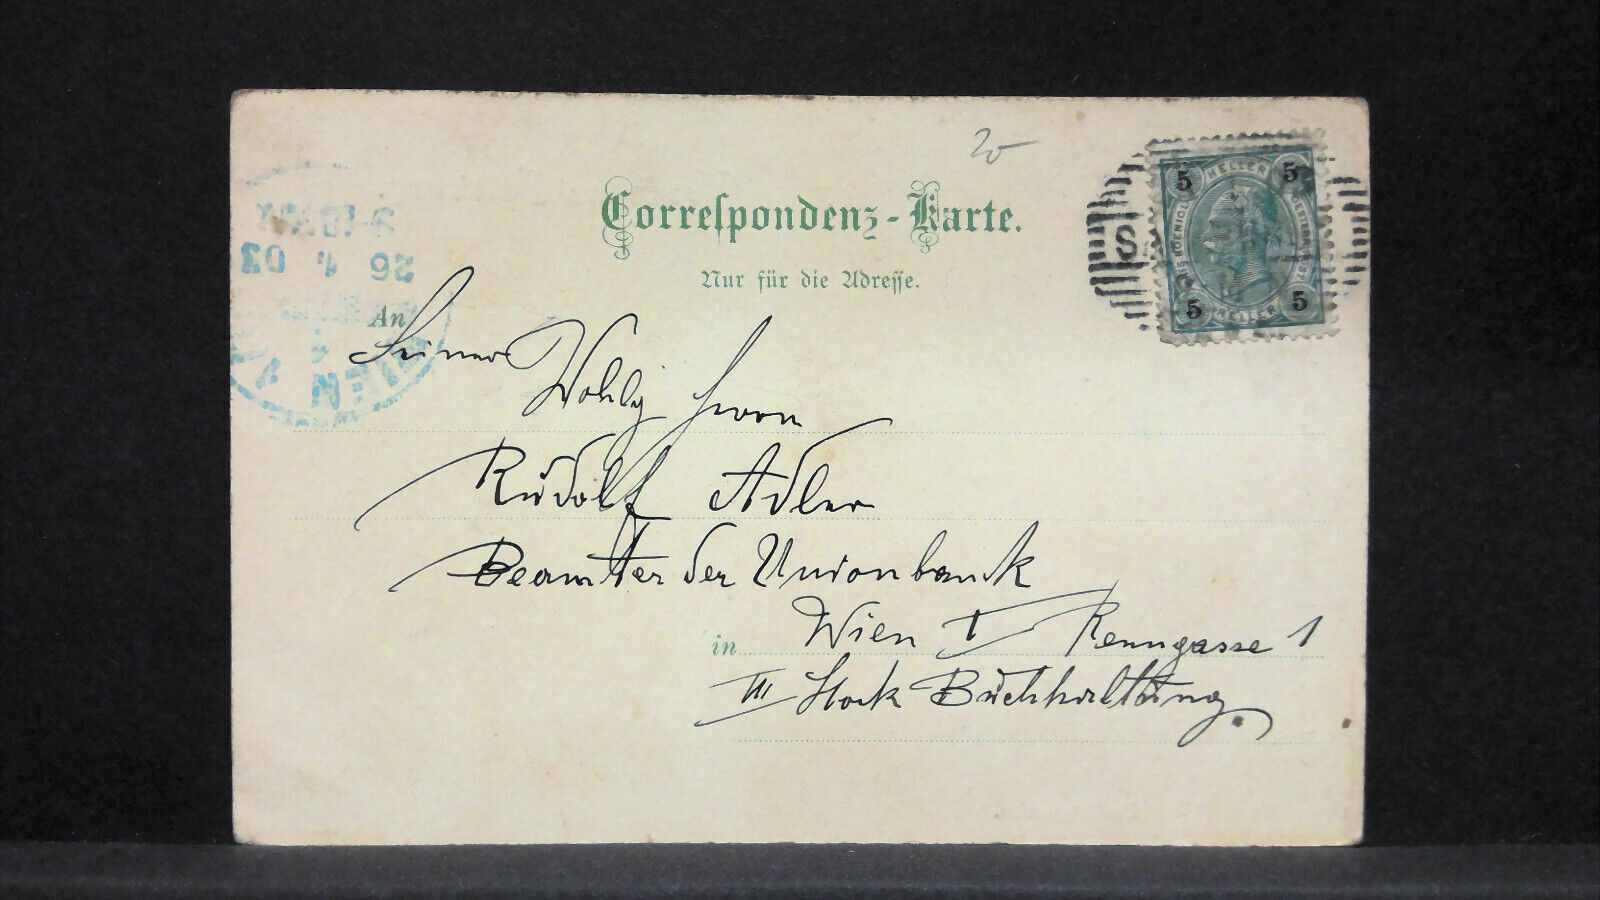 20
Correspondenz-Karte.
Nur für die Adresse.
5 HELLER 5
5 HELLER 5
S
26 1. 03
WIEN 1
An
Seiner
Wohlg Herrn
Rudolf Adler
Beamter der Unionbank
in Wien I Renngasse 1
III Stock Buchhaltung.